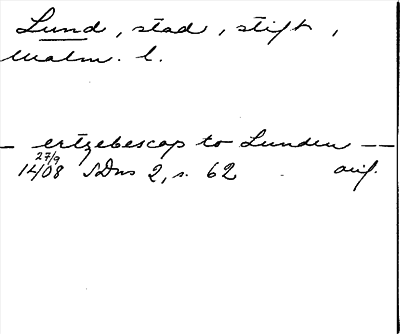 Lund, stad, stift,
Malm. l.
– ertzebescop to Lunden ––
27/9
1408 SDns 2, s. 62 orig.